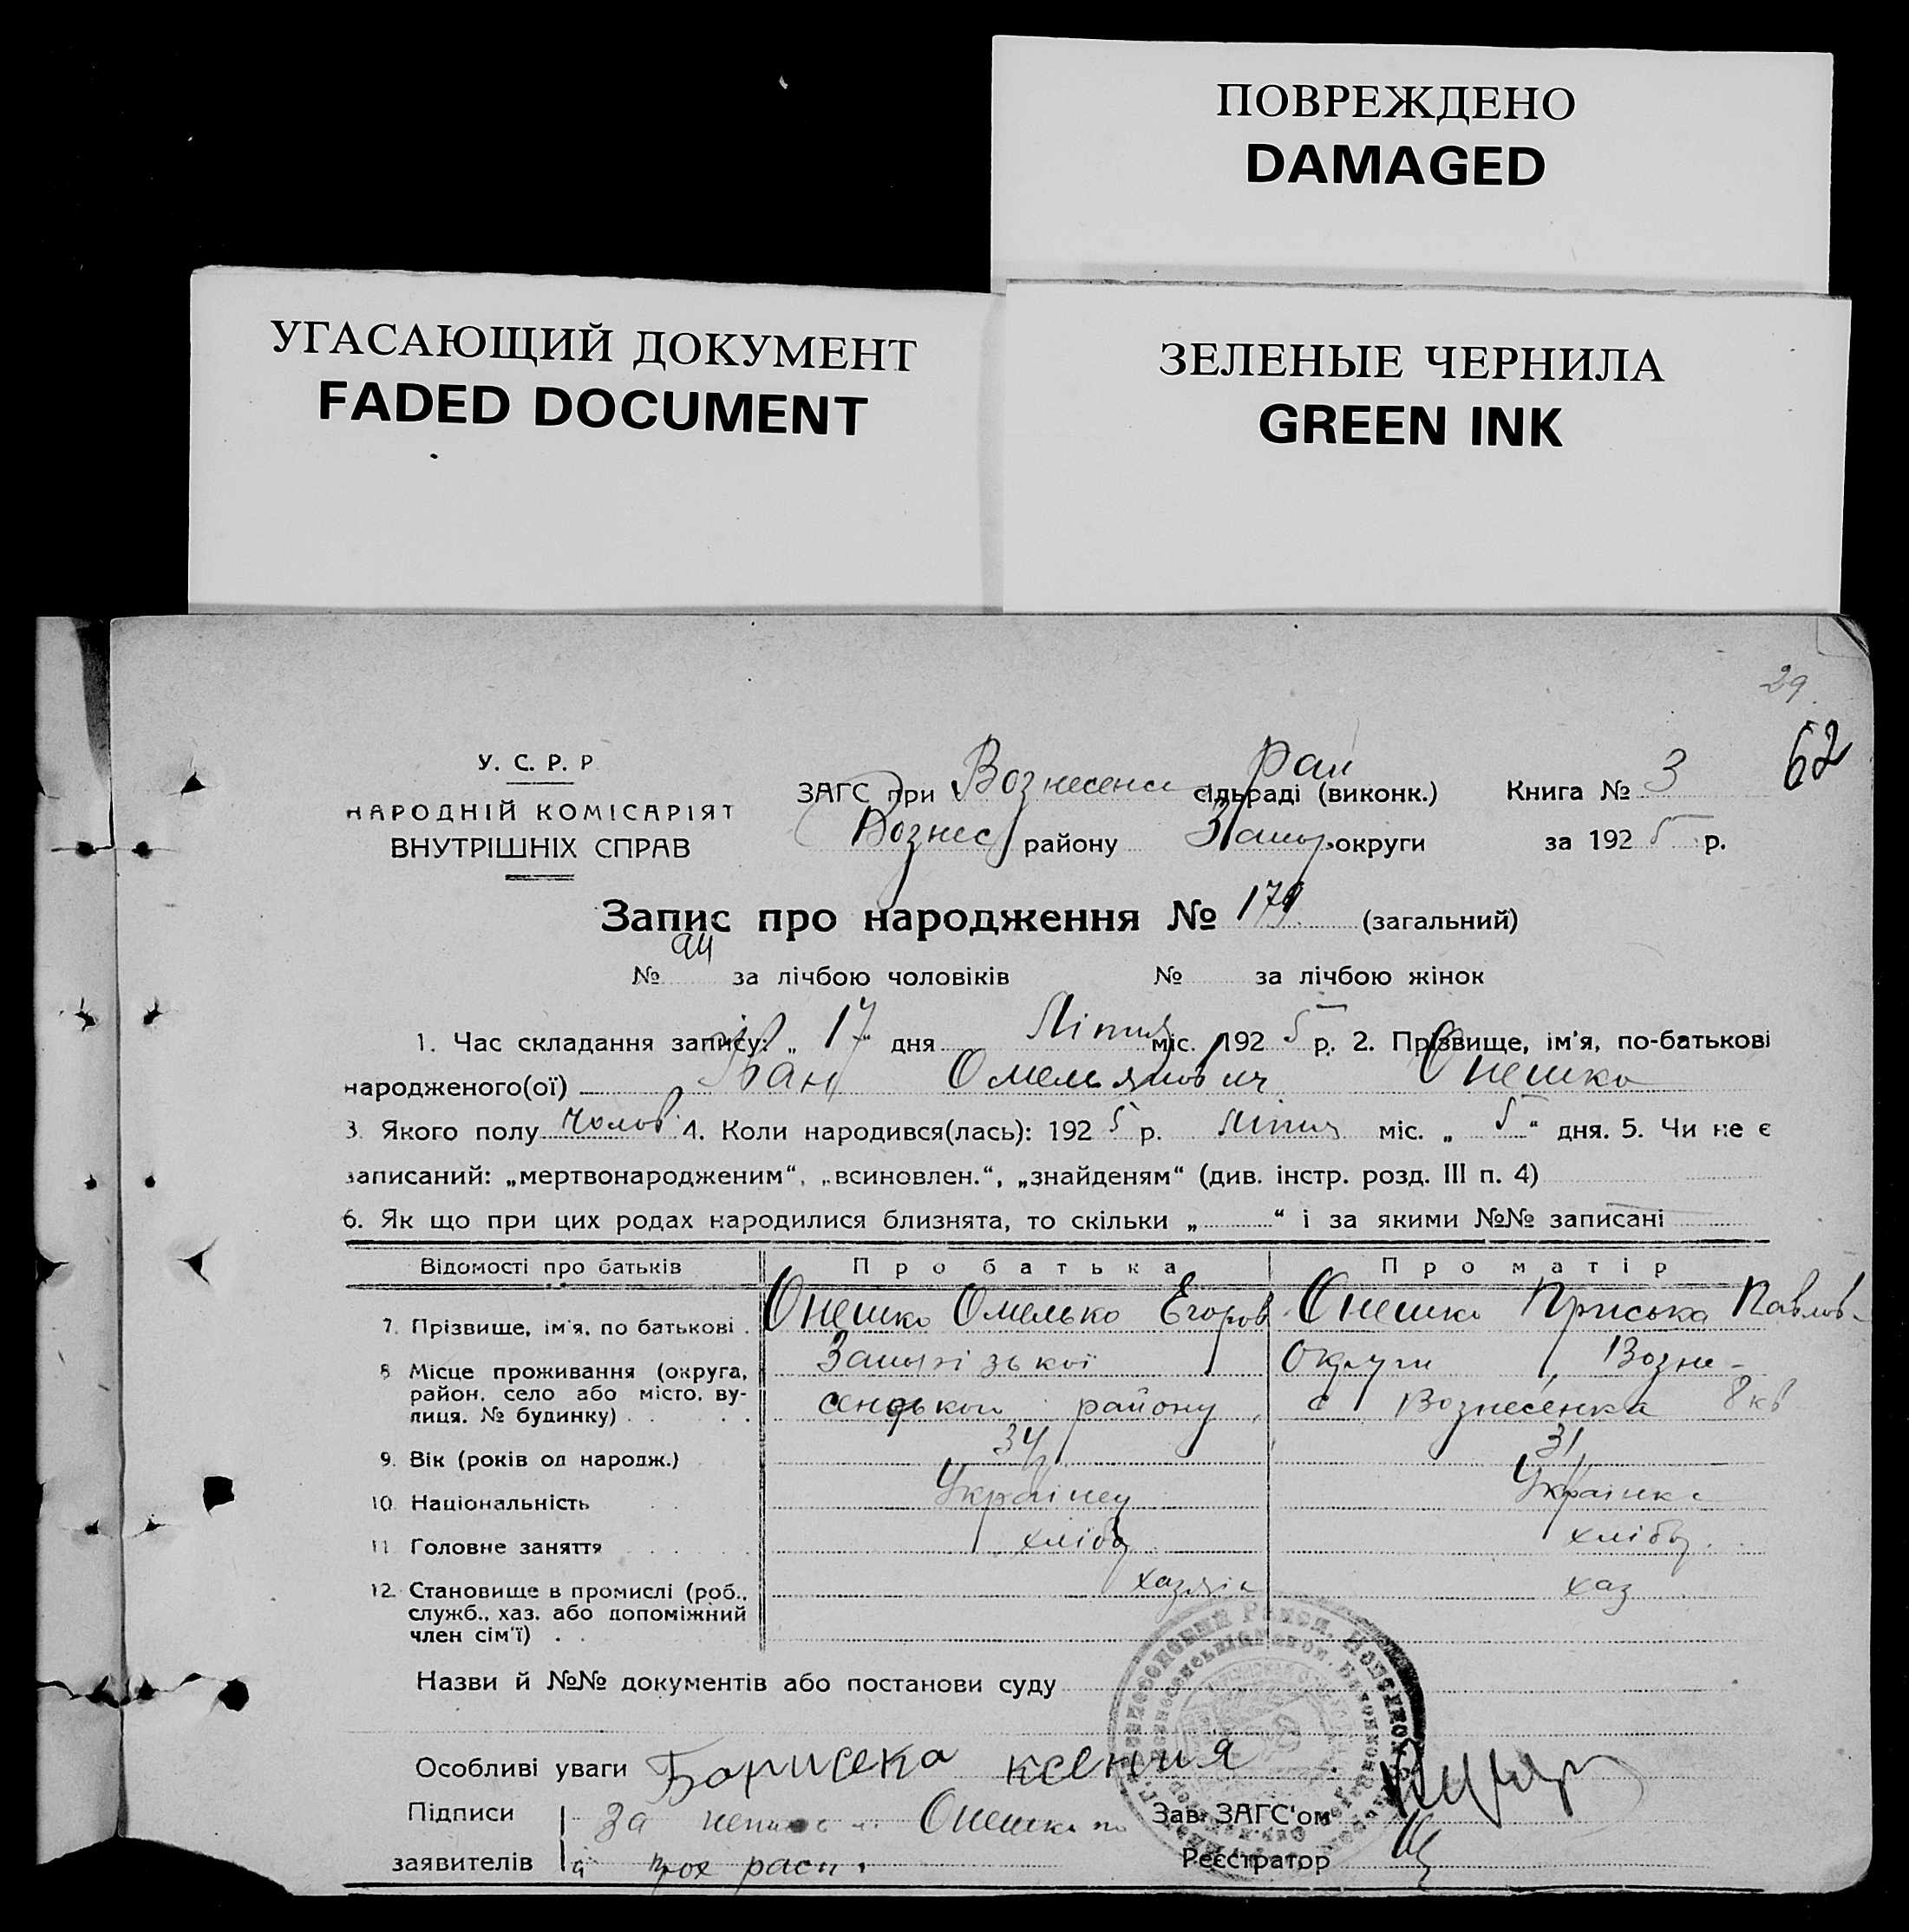 ПОВРЕЖДЕНО
DAMAGED
УГАСАЮЩИЙ ДОКУМЕНТ
FADED DOCUMENT
ЗЕЛЕНЫЕ ЧЕРНИЛА
GREEN INK
29
62
У. С. Р. Р
НАРОДНІЙ КОМІСАРІЯТ
ВНУТРІШНІХ СПРАВ
ЗАГС при Вознесенс рай сільраді (виконк.) Книга № 3
Вознес району Запор. округи за 1925 р.
Запис про народження № 179 (загальний)
№ 94 за лічбою чоловіків № за лічбою жінок
1. Час складання запису: „ 17 “ дня Літня міс. 1925 р. 2. Прізвище, ім'я, по-батькові
народженого(ої) Іван Омельянович Онешко
3. Якого полу Чолов. 4. Коли народився(лась): 1925 р. Літня міс. „ 5 “ дня. 5. Чи не є
записаний: „мертвонародженим“, „всиновлен.“, „знайденям“ (див. інстр. розд. III п. 4)
6. Як що при цих родах народилися близнята, то скільки „ “ і за якими №№ записані
Відомості про батьків Про батька Про матір
7. Прізвище, ім'я, по батькові . Онешко Омелько Егоров Онешко Приська Павлов-
8. Місце проживання (округа, район, село або місто, вулиця, № будинку) . . . . Запорізької округи Возне-
сенської району, с Вознесенка 8 кв
9. Вік (років од народж.) 34 31
10. Національність Українец Українка
11. Головне заняття хлібор хлібор.
12. Становище в промислі (роб., служб., хаз. або допоміжний член сім'ї) . . хазяін хаз
Назви й №№ документів або постанови суду
Особливі уваги Борисека ксения
Підписи За Онешко Зав. ЗАГС'ом
заявителів расп. Реєстратор